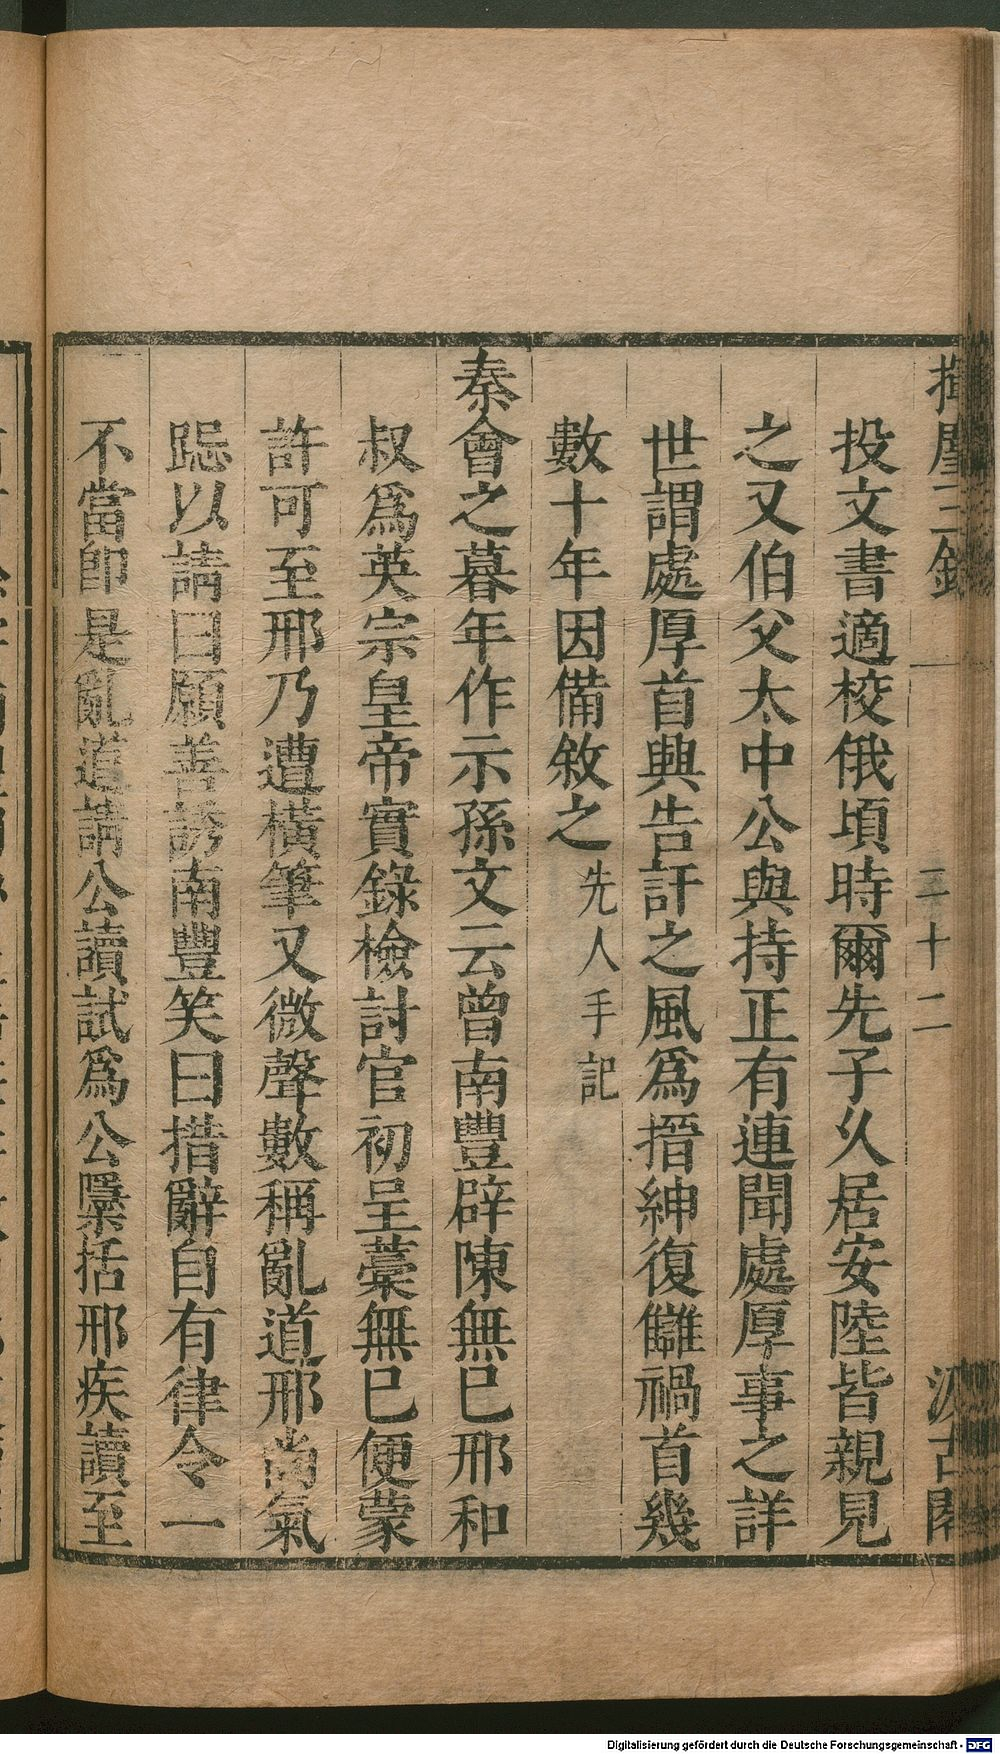 揮麈三錄
二十二
汲古閣
投文書適校俄頃時爾先子久居安陸皆親見
之又伯父太中公與持正有連聞處厚事之詳
世謂處厚首興告訐之風爲搢紳復讎禍首幾
數十年因備敘之先人手記
秦會之暮年作示孫文云曾南豐辟陳無巳邢和
叔爲英宗皇帝實錄檢討官初呈藁無巳便蒙
許可至邢乃遭橫筆又微聲數稱亂道邢尚氣
跽以請曰願善誘南豐笑曰措辭自有律令一
不當卽是亂道請公讀試爲公檃括邢疾讀至
Digitalisierung gefördert durch die Deutsche Forschungsgemeinschaft - DFG